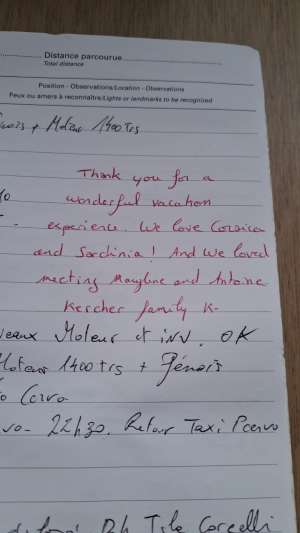 Distance parcourue
Total distance
Position - Observations/Location - Observations
Feux ou amers à reconnaître/Lights or landmarks to be recognized
Génois + Moteur 1400 Trs
Thank you for a
wonderful vacation
experience. We love Corsica
and Sardinia! And we loved
meeting Maryline and Antoine
Kercher family K-
Moteur et inv. OK
Moteur 1400 Trs + Génois
Cervo
22h30. Retour Taxi P cervo